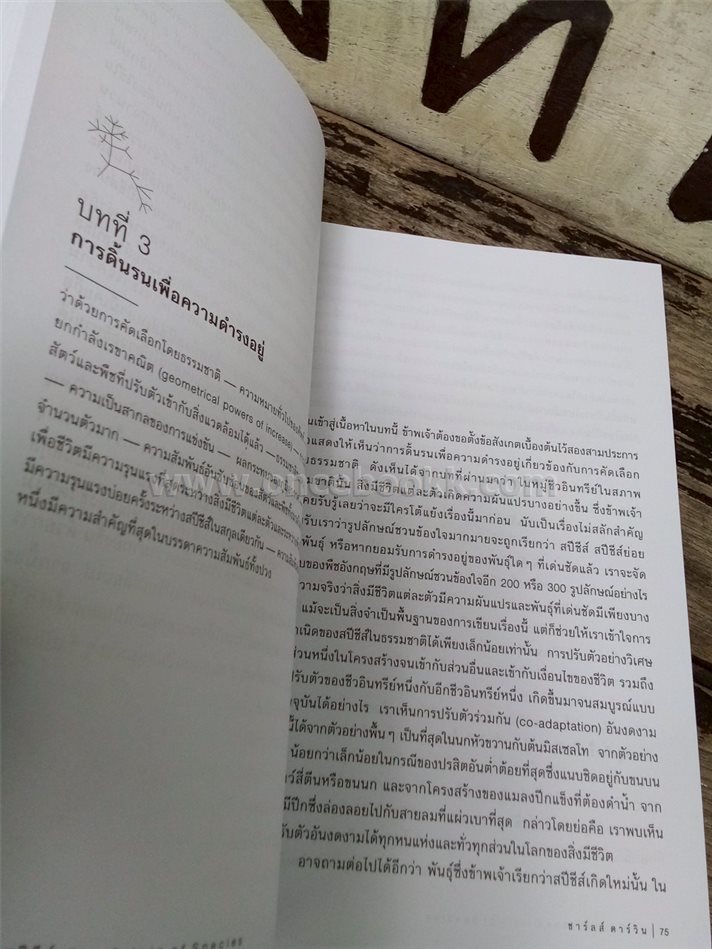 บทที่ 3
การดิ้นรนเพื่อความดำรงอยู่
ว่าด้วยการคัดเลือกโดยธรรมชาติ — ความหมายทั่วไปของ
ยกกำลังเรขาคณิต (geometrical powers of increase)
สัตว์และพืชที่ปรับตัวเข้ากับสิ่งแวดล้อมได้แล้ว —
— ความเป็นสากลของการแข่งขัน — ผลกระทบ
จำนวนตัวมาก — ความสัมพันธ์อันซับซ้อนของสัตว์และพืช
เพื่อชีวิตมีความรุนแรง ระหว่างสิ่งมีชีวิตแต่ละตัวและ
มีความรุนแรงบ่อยครั้งระหว่างสปีชีส์ในสกุลเดียวกัน —
หนึ่งมีความสำคัญที่สุดในบรรดาความสัมพันธ์ทั้งปวง
นเข้าสู่เนื้อหาในบทนี้ ข้าพเจ้าต้องขอตั้งข้อสังเกตเบื้องต้นไว้สองสามประการ
งแสดงให้เห็นว่าการดิ้นรนเพื่อความดำรงอยู่เกี่ยวข้องกับการคัดเลือก
ยธรรมชาติ ดังเห็นได้จากบทที่ผ่านมาว่า ในหมู่ชีวอินทรีย์ในสภาพ
ชาตินั้น สิ่งมีชีวิตแต่ละตัวเกิดความผันแปรบางอย่างขึ้น ซึ่งข้าพเจ้า
คยรับรู้เลยว่าจะมีใครโต้แย้งเรื่องนี้มาก่อน นับเป็นเรื่องไม่สลักสำคัญ
รับเราว่ารูปลักษณ์ชวนข้องใจมากมายจะถูกเรียกว่า สปีชีส์ สปีชีส์ย่อย
พันธุ์ หรือหากยอมรับการดำรงอยู่ของพันธุ์ใดๆ ที่เด่นชัดแล้ว เราจะจัด
บของพืชอังกฤษที่มีรูปลักษณ์ชวนข้องใจอีก 200 หรือ 300 รูปลักษณ์อย่างไร
ความจริงว่าสิ่งมีชีวิตแต่ละตัวมีความผันแปรและพันธุ์ที่เด่นชัดมีเพียงบาง
แม้จะเป็นสิ่งจำเป็นพื้นฐานของการเขียนเรื่องนี้ แต่ก็ช่วยให้เราเข้าใจการ
ำเนิดของสปีชีส์ในธรรมชาติได้เพียงเล็กน้อยเท่านั้น การปรับตัวอย่างวิเศษ
ส่วนหนึ่งในโครงสร้างจนเข้ากับส่วนอื่นและเข้ากับเงื่อนไขของชีวิต รวมถึง
ปรับตัวของชีวอินทรีย์หนึ่งกับอีกชีวอินทรีย์หนึ่ง เกิดขึ้นมาจนสมบูรณ์แบบ
จจุบันได้อย่างไร เราเห็นการปรับตัวร่วมกัน (co-adaptation) อันงดงาม
นี้ได้จากตัวอย่างพื้นๆ เป็นที่สุดในนกหัวขวานกับต้นมิสเซลโท จากตัวอย่าง
น้อยกว่าเล็กน้อยในกรณีของปรสิตอันต่ำต้อยที่สุดซึ่งแนบชิดอยู่กับขนบน
ว์สี่ตีนหรือขนนก และจากโครงสร้างของแมลงปีกแข็งที่ต้องดำน้ำ จาก
มีปีกซึ่งล่องลอยไปกับสายลมที่แผ่วเบาที่สุด กล่าวโดยย่อคือ เราพบเห็น
รับตัวอันงดงามได้ทุกหนแห่งและทั่วทุกส่วนในโลกของสิ่งมีชีวิต
อาจถามต่อไปได้อีกว่า พันธุ์ซึ่งข้าพเจ้าเรียกว่าสปีชีส์เกิดใหม่นั้น ใน
ชาร์ลส์ ดาร์วิน | 75